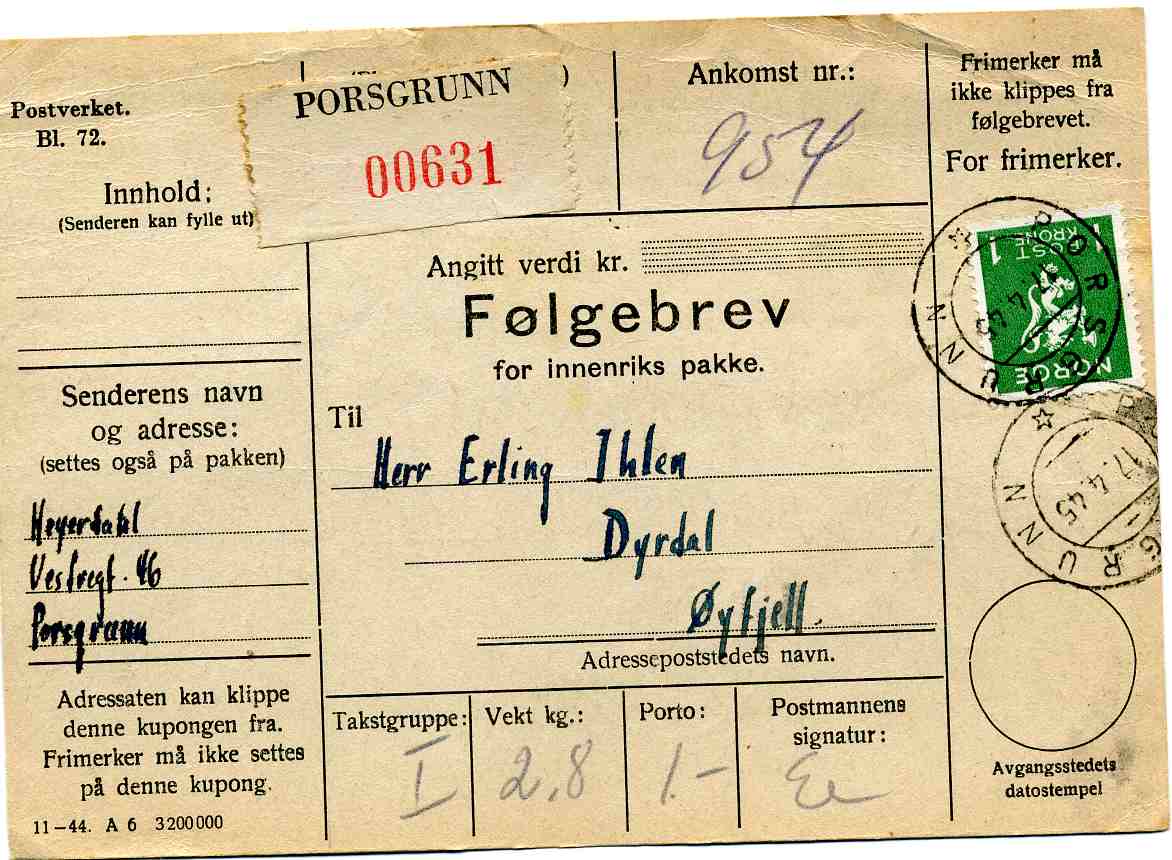 Postverket.
Bl. 72.
Innhold:
(Senderen kan fylle ut)
Senderens navn
og adresse:
(settes også på pakken)
Heyerdahl
Vestregt. 46
Porsgrunn
Adressaten kan klippe
denne kupongen fra.
Frimerker må ikke settes
på denne kupong.
11-44. A 6 3200000
PORSGRUNN
00631
Ankomst nr.:
954
Angitt verdi kr.
Følgebrev
for innenriks pakke.
Til
Herr Erling Ihlen
Dyrdal
Øyfjell.
Adressepoststedets navn.
Takstgruppe:
I
Vekt kg.:
2,8
Porto:
1.-
Postmannens
signatur:
Frimerker må
ikke klippes fra
følgebrevet.
For frimerker.
POST
KRONE
1 1
NORGE
PORSGRUNN
17.4.45
PORSGRUNN
17.4.45
Avgangsstedets
datostempel